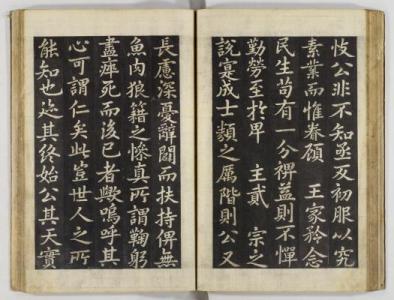 忮公非不知亟反初服以究
素業而惟眷顧 王家矜念
民生苟有一分裨益則不憚
勤勞至於畀 主貳 宗之
說寔成士類之厲階則公又
長慮深憂辭闢而扶持俾無
魚肉狼籍之慘真所謂鞠躬
盡瘁死而後已者歟嗚呼其
心可謂仁矣此豈世人之所
能知也迄其終始公其天實